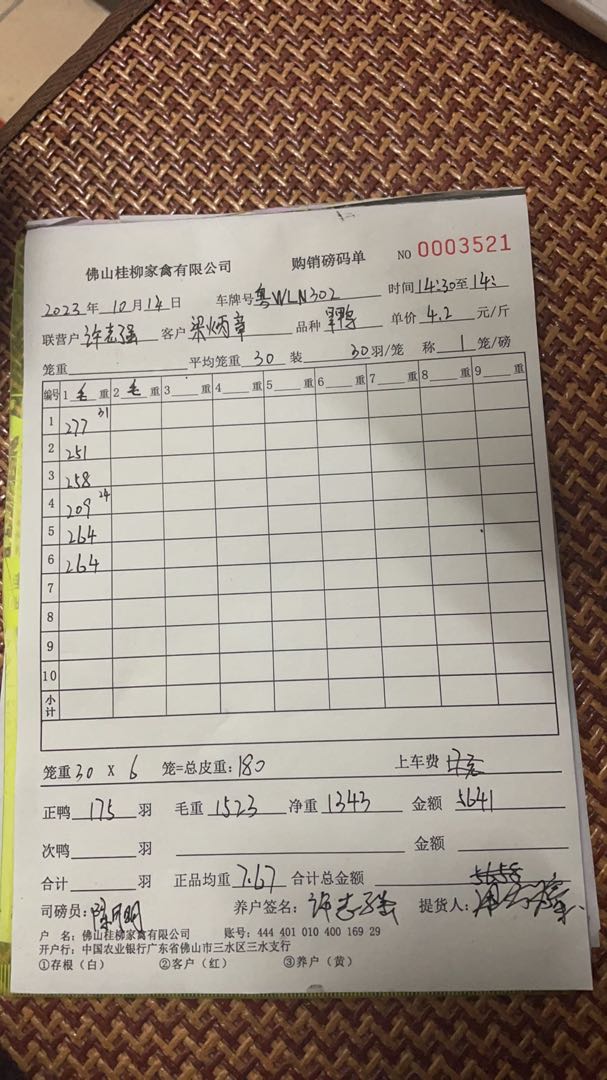 佛山桂柳家禽有限公司 购销磅码单 NO 0003521
2023年10月14日 车牌号 粤WLN302 时间14:30至14:
联营户 许志强 客户 梁炳章 品种 鸭 单价 4.2 元/斤
笼重 平均笼重 30 装 30 羽/笼 称 1 笼/磅
编号 1 毛 重 2 毛 重 3 重 4 重 5 重 6 重 7 重 8 重 9
1 277 31
2 251
3 258
4 209 24
5 264
6 264
7
8
9
10
小计
笼重 30 X 6 笼=总皮重: 180 上车费
正鸭 175 羽 毛重 1523 净重 1343 金额 5641
次鸭 羽 金额
合计 羽 正品均重 7.67 合计总金额
司磅员: 养户签名: 许志强 提货人:
户 名: 佛山桂柳家禽有限公司 账号: 444 401 010 400 169 29
开户行: 中国农业银行广东省佛山市三水区三水支行
①存根(白) ②客户(红) ③养户(黄)